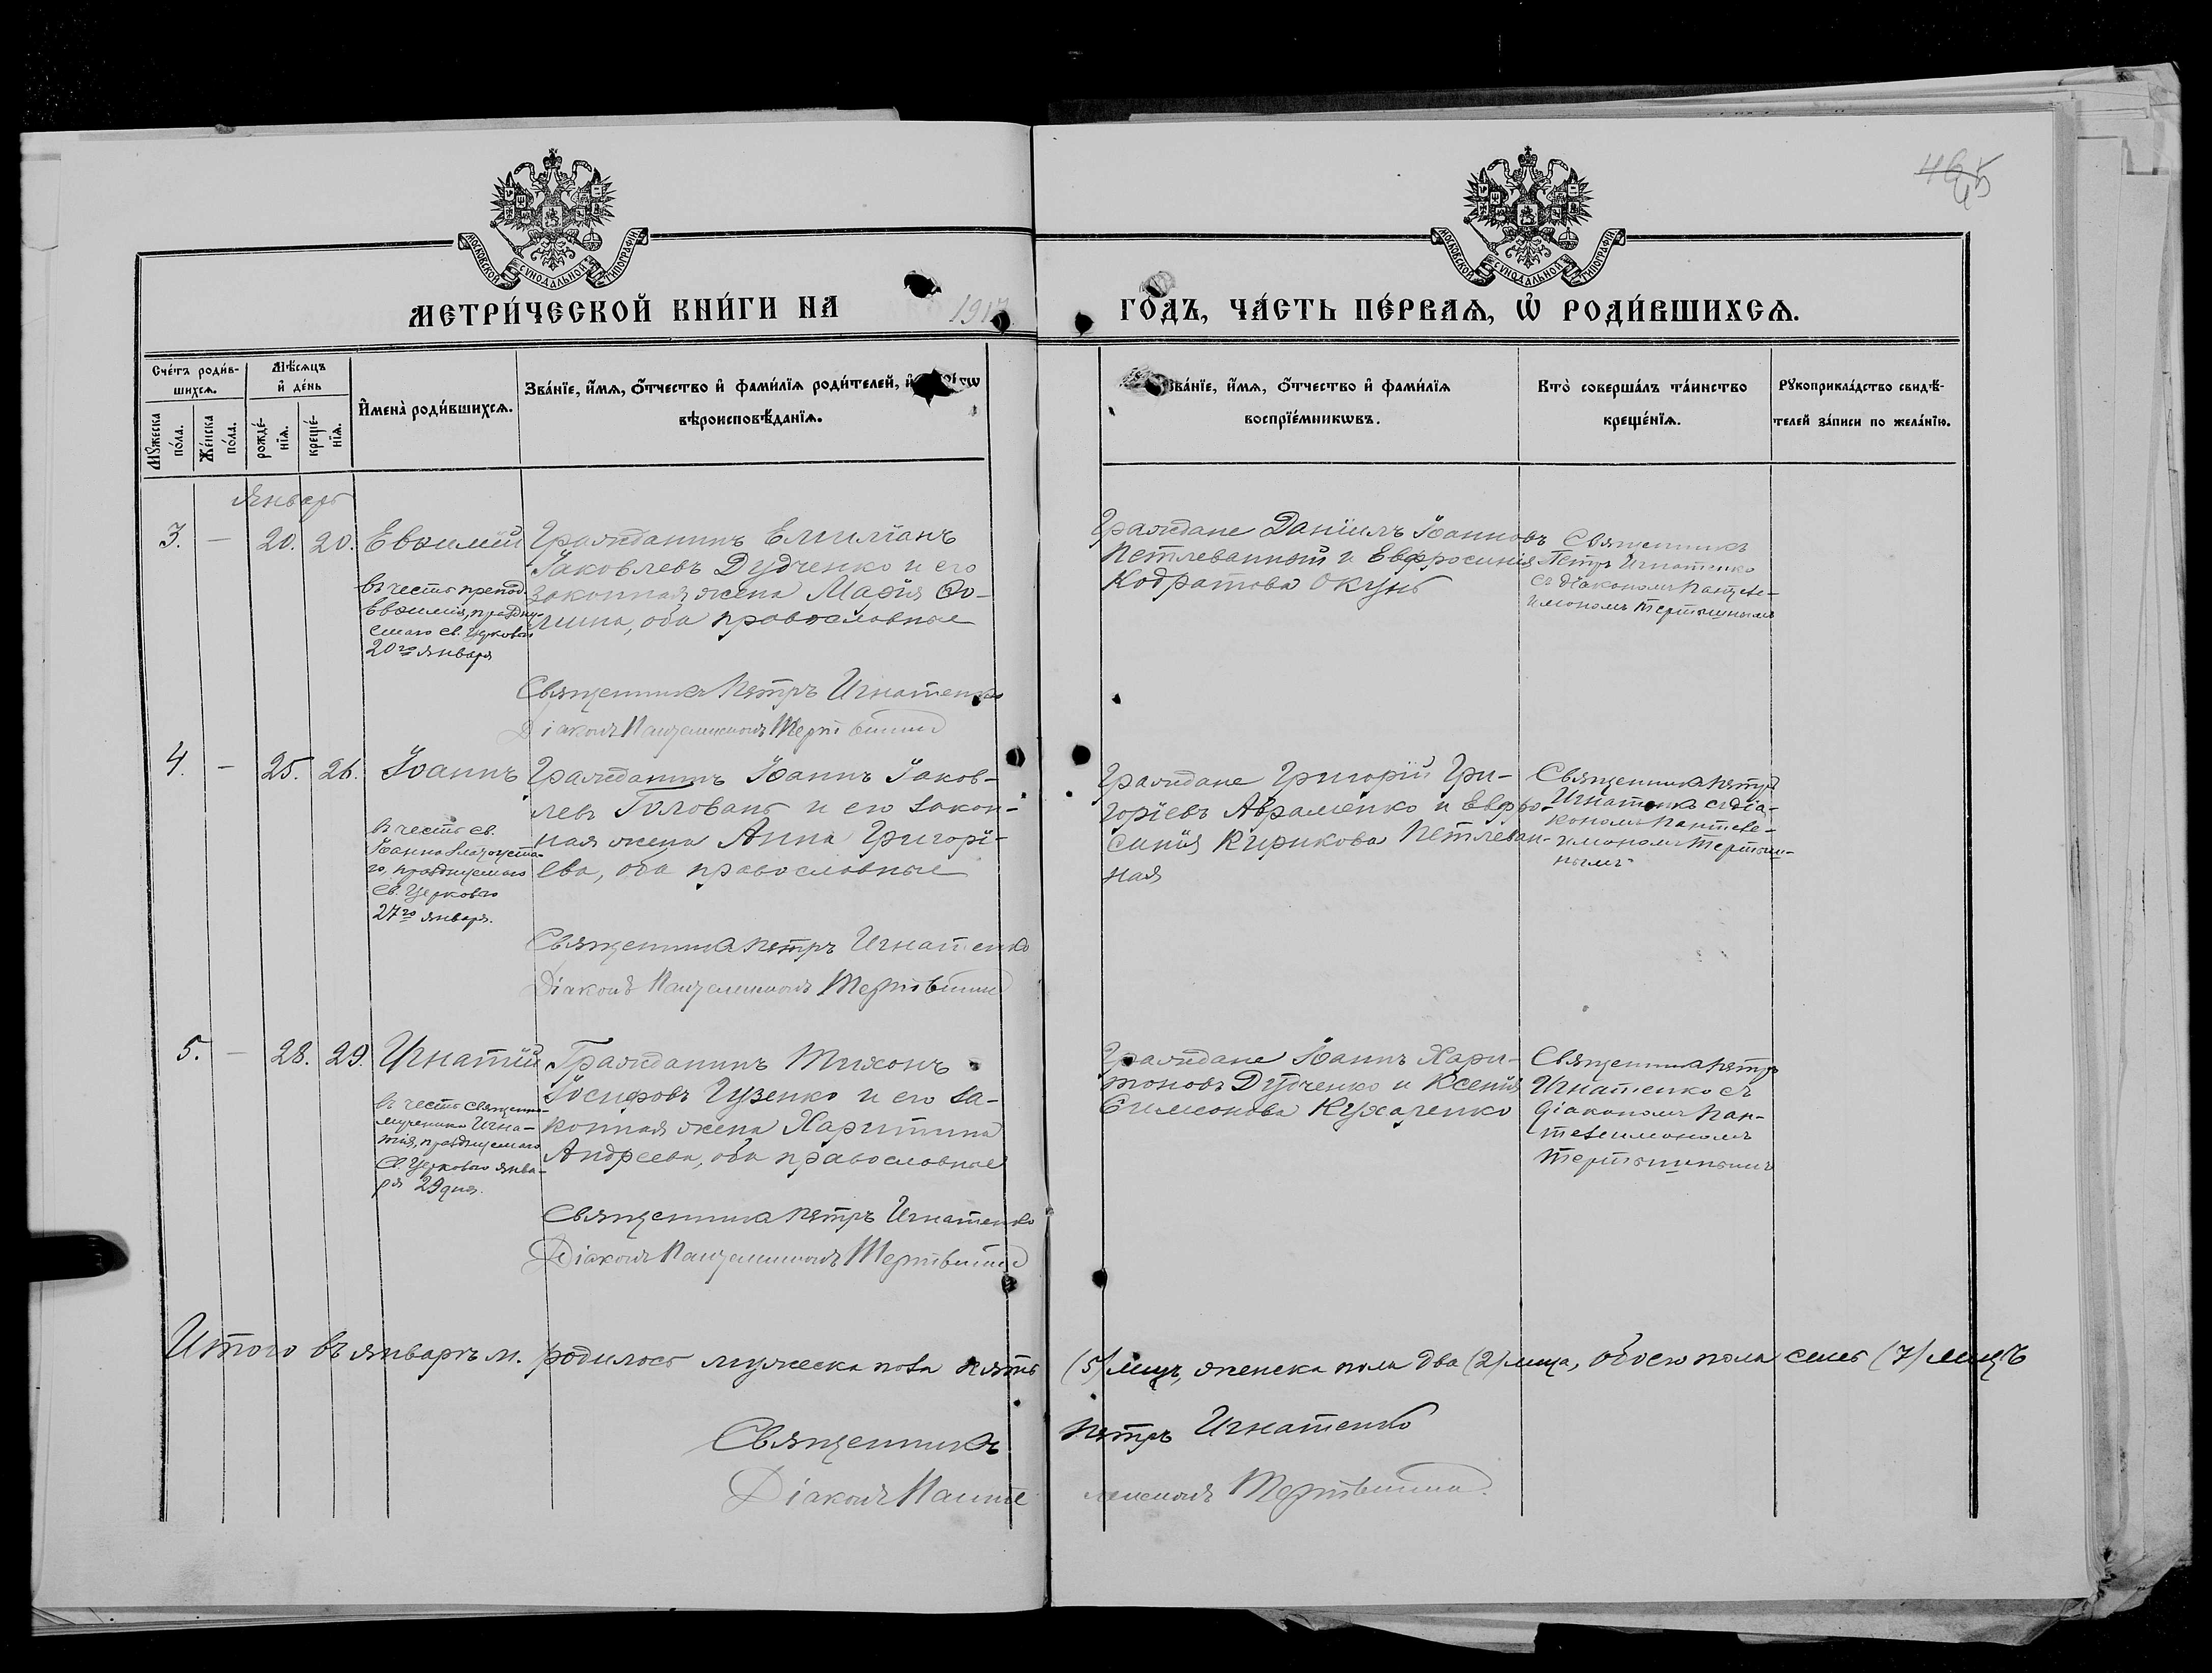 45
МОСКОВСКОЙ СѴНОДАЛЬНОЙ ТИПОГРАФІИ
МОСКОВСКОЙ СѴНОДАЛЬНОЙ ТИПОГРАФІИ
МЕТРИ́ЧЕСКОЙ КНИ́ГИ НА 191
ГО́ДЪ, ЧА́СТЬ ПЕ́РВАѦ, Ѡ҆ РОДИ́ВШИХСѦ.
Сче́тъ роди́в-
шихсѧ.
Мꙋ́жеска
по́ла.
Же́нска
по́ла.
Мѣ́сѧцъ
и҆ де́нь
рожде́-
нїѧ.
креще́-
нїѧ.
И҆мена̀ роди́вшихсѧ.
Зва́нїе, и҆́мѧ, ѻ҆́тчество и҆ фами́лїѧ роди́телей, и҆
вѣроисповѣ́данїѧ.
Зва́нїе, и҆́мѧ, ѻ҆́тчество и҆ фами́лїѧ
воспрїе́мникѡвъ.
Кто̀ соверша́лъ та́инство
креще́нїѧ.
Рꙋкоприкла́дство свидѣ́-
телей за́писи по жела́нїю.
Январь
3. — 20. 20.
Евѳимій
въ честь препод.
Евѳимія, праздну
емаго св. Церковью
20го января
Гражданинъ Емиліанъ
Іаковлевъ Дудченко и его
законная жена Марія Ѳо-
мина, оба православные
Священникъ Петръ Игнатенко
Діаконъ Пантелеимонъ Тертышный
Граждане Даніилъ Іоанновъ
Петлеванный и Евфросинія
Кодратова Окунь
Священникъ
Петръ Игнатенко
съ діакономъ Панте-
имономъ Тертышнымъ
4. — 25. 26.
Іоаннъ
въ честь св.
Іоанна Златоуста-
го, празднуемаго
Св. Церковью
27го января.
Гражданинъ Іоаннъ Іаков-
левъ Головань и его закон-
ная жена Анна Григорі-
ева, оба православные
Священникъ Петръ Игнатенко
Діаконъ Пантелеимонъ Тертышный
Граждане Григорій Гри-
горіевъ Авраменко и Евфро-
синія Кирикова Петлеван-
ная
Священникъ Петръ
Игнатенко съ діа-
кономъ Пантеле-
имономъ Тертыш-
нымъ
5. — 28. 29.
Игнатій
въ честь священно-
мученика Игна-
тія, празднуемаго
Св. Церковью янва-
ря 29 дня.
Гражданинъ Тихонъ
Іосифовъ Гузенко и его за-
конная жена Харитина
Андреева, оба православные
Священникъ Петръ Игнатенко
Діаконъ Пантелеимонъ Тертышный
Граждане Іоаннъ Хари-
тоновъ Дудченко и Ксенія
Симеонова Кухаренко
Священникъ Петръ
Игнатенко съ
діакономъ Пан-
телеимономъ
Тертышнымъ
Итого въ январѣ м. родилось мужеска пола пять (5) лицъ, женска пола два (2) лица, обоего пола семь (7) лицъ
Священникъ Петръ Игнатенко
Діаконъ Пантелеимонъ Тертышный.